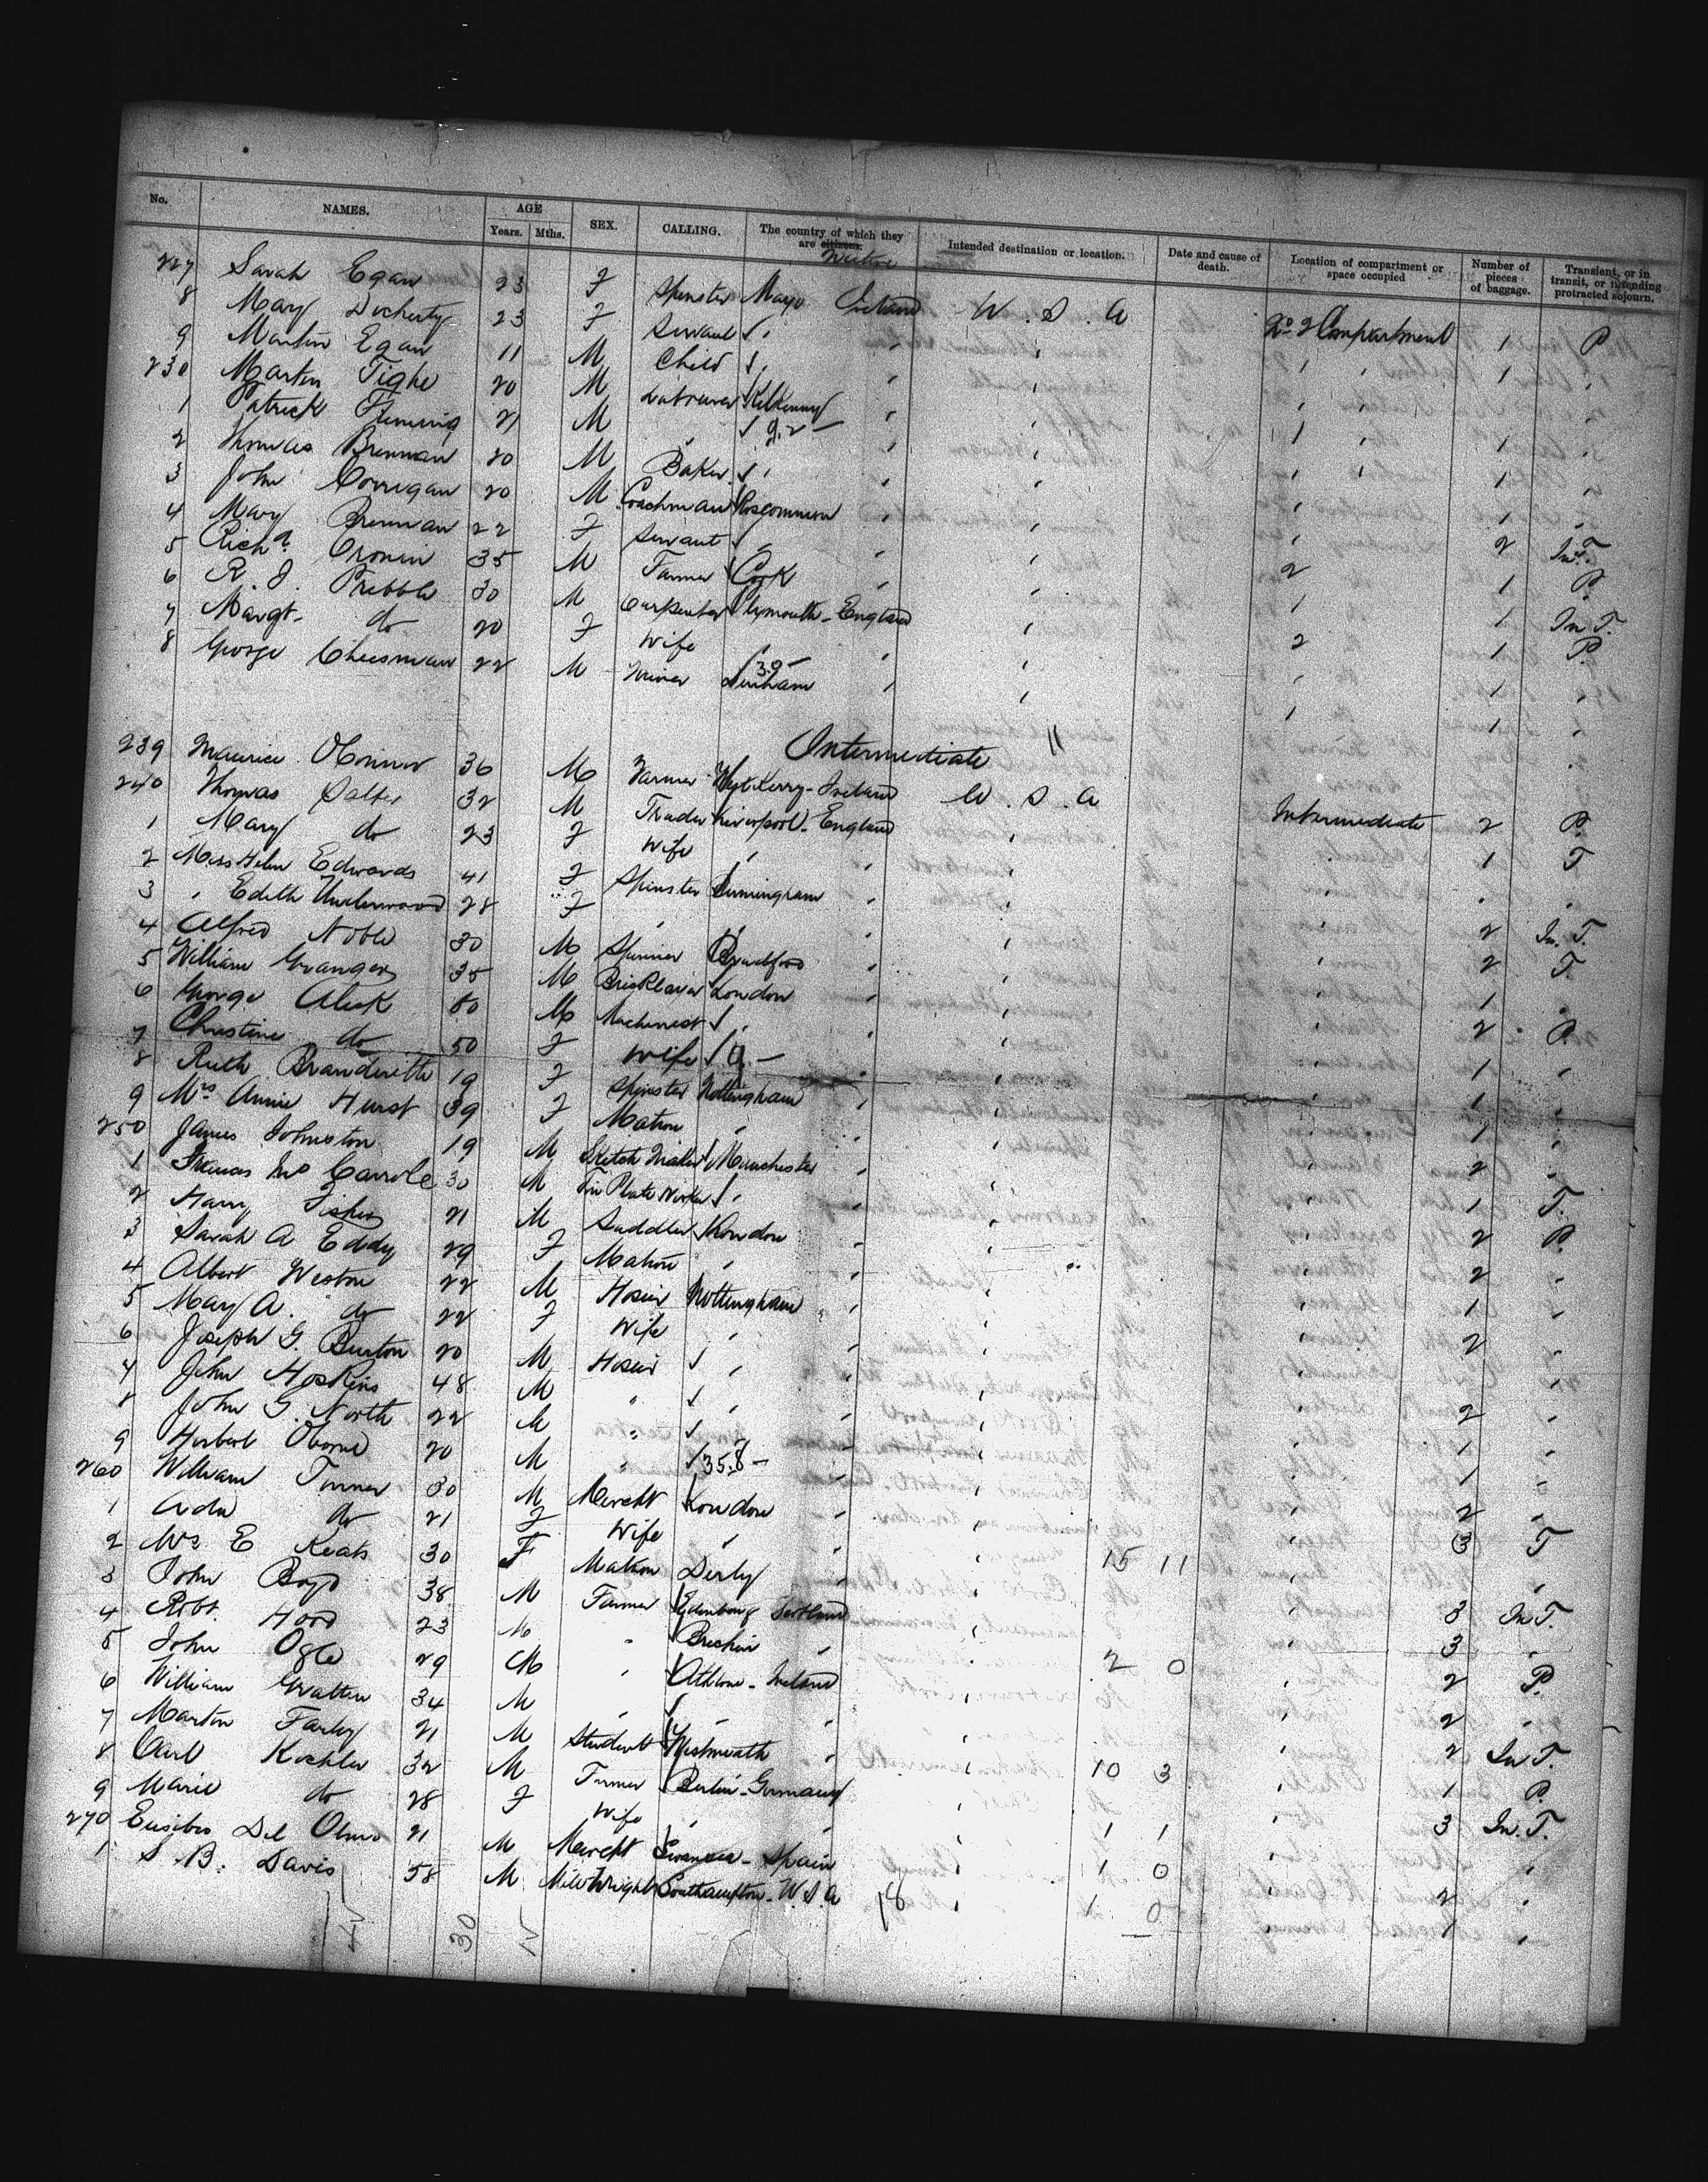 No. NAMES. AGE Years. Mths. SEX. CALLING. The country of which they are citizens. Native Intended destination or location. Date and cause of death. Location of compartment or space occupied Number of pieces of baggage. Transient, or in transit, or intending protracted sojourn.
227 Sarah Egan 23 F Spinster Mayo Ireland U. S. A No 2 Compartment 1 P
8 Mary Docherty 23 F Servant " " " 1 "
9 Martin Egan 11 M Child " " "
230 Martin Tighe 20 M Labourer Kilkenny " " 1 "
1 Patrick Fleming 21 M " 9.2 — " " 1 "
2 Thomas Brennan 20 M Baker " " " 1 "
3 John Corrigan 20 M Coachman Roscommon " " 2 In T.
4 Mary Brennan 22 F Servant " " " 1 P.
5 Richd. Cronin 35 M Farmer Cork " " 1 In T.
6 R. J. Pribble 30 M Carpenter Plymouth - England " 1 P.
7 Margt. do 20 F Wife " " " 1 "
8 George Cheesman 22 M Miner Durham 39 — " " 1 "
Intermediate "
239 Maurice OConnor 36 M Farmer West Kerry - Ireland U. S. A Intermediate 2 P.
240 Thomas Salter 32 M Trader Liverpool - England " " 1 T
1 Mary do 23 F Wife " " " " "
2 Miss Helen Edwards 41 F Spinster Birmingham " " 2 In. T.
3 " Edith Underwood 28 F " " " " 2 T.
4 Alfred Noble 30 M Spinner Bradford " " 1 "
5 William Granger 35 M Bricklayer London " " 2 P.
6 George Aleck 50 M Machinest " " " 1 "
7 Christine do 50 F Wife 9. — " " 1 "
8 Ruth Branderette 19 F Spinster Nottingham " " 1 "
9 Mrs Annie Hurst 39 F Matron " " " 2 "
250 James Johnston 19 M Sketch Maker Manchester " " 1 T.
1 Thomas Mc Carrole 30 M Tin Plate Worker " " " 2 P.
2 Harry Fisher 21 M Saddler London " " 2 "
3 Sarah A Eddy 29 F Matron " " " 1 "
4 Albert Weston 22 M Hosier Nottingham " " 2 "
5 Mary A. do 22 F Wife " " " "
6 Joseph G. Burton 20 M Hosier " " " 2 "
7 John Hoskins 48 M " " " " 1 "
8 John G. North 22 M " " " " 1 "
9 Herbert Oborne 20 M " 35.8 — " " 2 "
260 William Turner 30 M Mercht London " " 3 T
1 Ada do 21 F Wife " " " 15 11 "
2 Mrs E Keats 30 F Matron Derby " " 3 In T.
3 John Boyd 38 M Farmer Edinburg Scotland " 3 "
4 Robt. Hood 23 M " Brechin " " 2 0 2 P.
5 John Ogle 29 M " Athlone - Ireland " 2 "
6 William Gratten 34 M " " " " 2 In T.
7 Martin Farley 21 M Student Westmeath " " 10 3 1 P.
8 Carl Koehler 32 M Farmer Berlin - Germany " 3 In. T.
9 Marie do 28 F Wife " " " 1 1 "
270 Eusibio Del Olmo 21 M Mercht Spain " 1 0 2 "
1 S. B. Davis 58 M Millwright Southampton - U. S. A 18 " 1 0 1 "
30